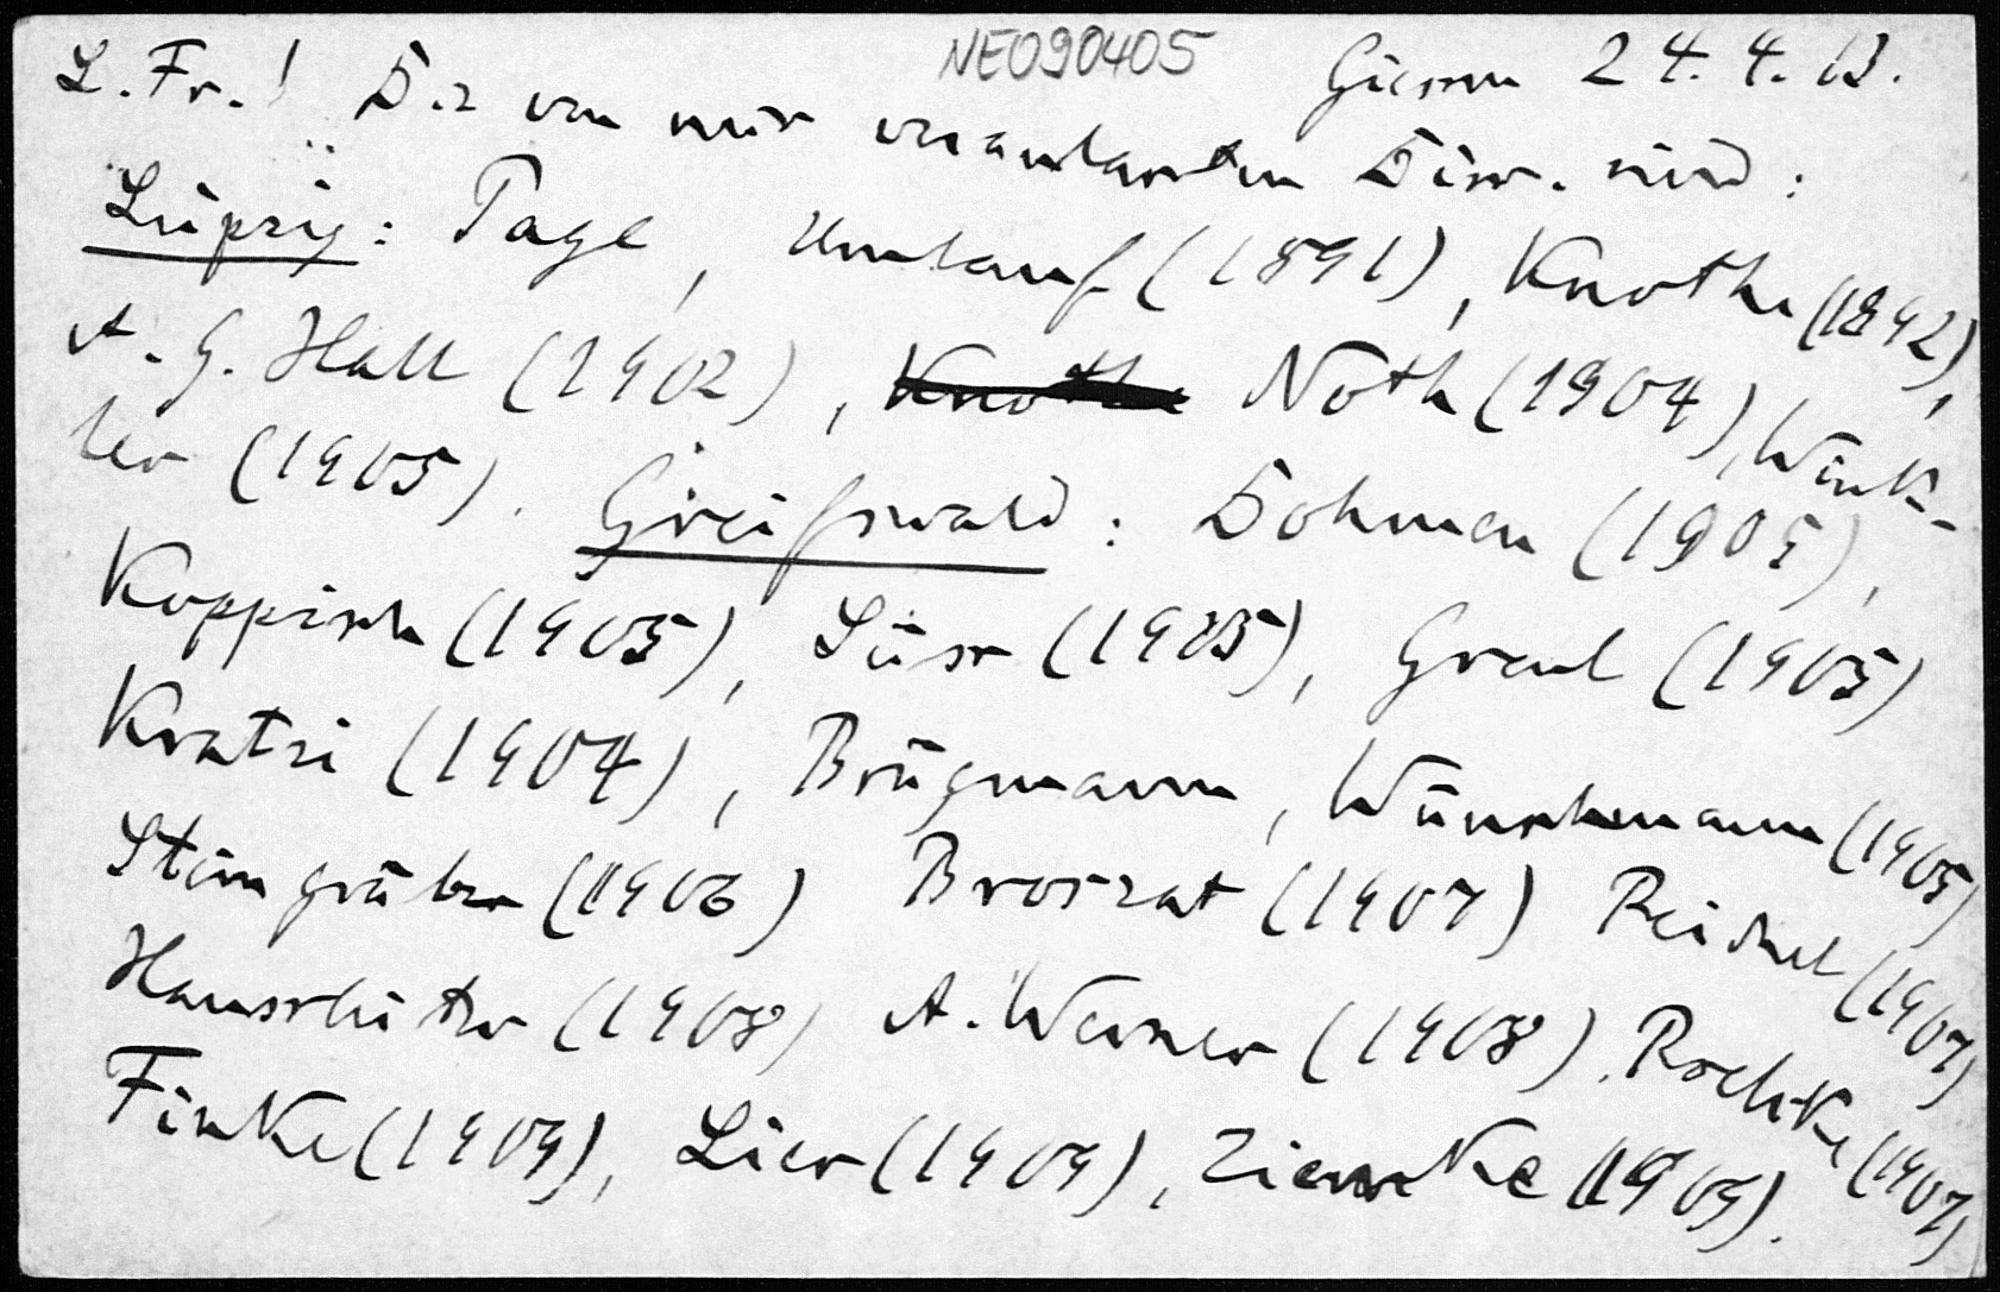 NE090405
Giessen 24. 4. 13.
L. Fr.! Die von mir veranlassten Diss. sind:
Leipzig: Page, Umlauf (1891), Knothe (1892),
A. G. Hall (1902), Knothe Nöth (1904), Wink-
ler (1905). Greifswald: Dohmen (1905),
Koppisch (1905), Süss (1905), Greul (1905)
Kratzi (1904), Brügmann, Wünschmann (1905)
Steingräber (1906) Broszat (1907) Reichel (1907)
Hausschütz (1908) A. Werner (1908). (1907)
Finke (1909), Lier (1909), Ziemke (1909).